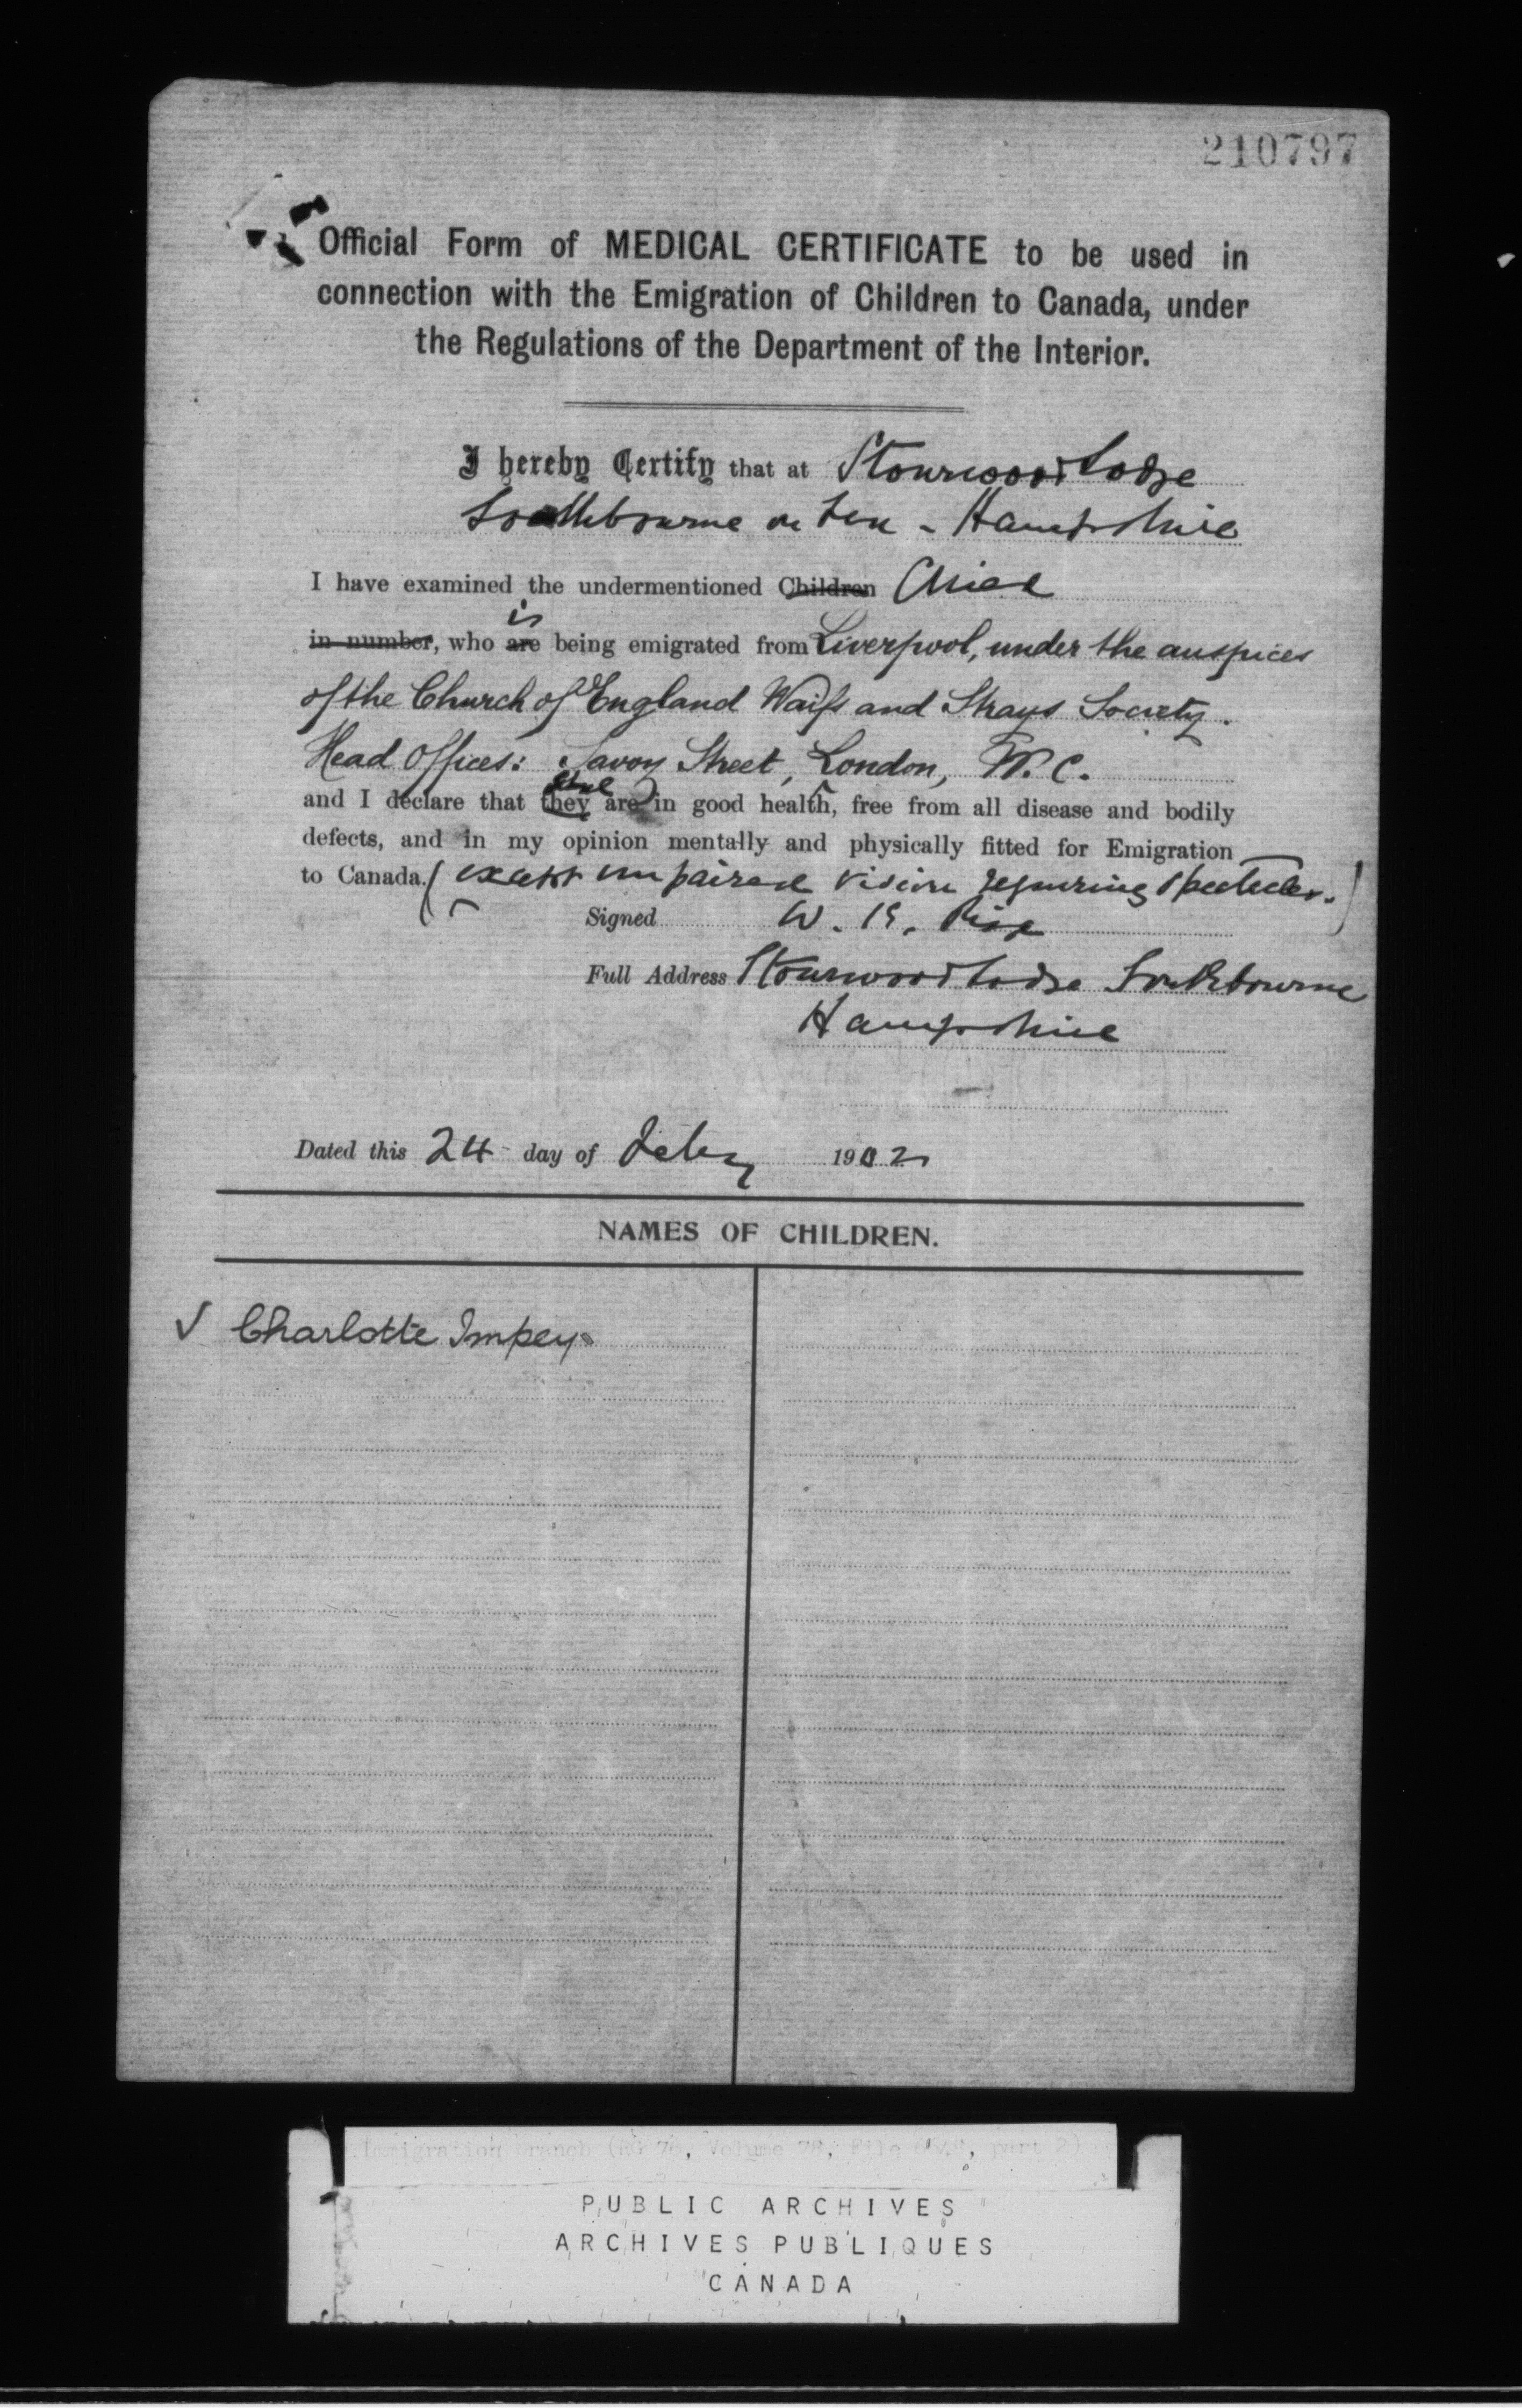 210797
Official Form of MEDICAL CERTIFICATE to be used in
connection with the Emigration of Children to Canada, under
the Regulations of the Department of the Interior.
I hereby Certify that at Stourwood Lodge
Southbourne on Sea - Hampshire
I have examined the undermentioned Children Child
is
in number, who are being emigrated from Liverpool, under the auspices
of the Church of England Waifs and Strays Society.
Head Offices: Savoy Street, London, W.C.
she
and I declare that they are in good health, free from all disease and bodily
defects, and in my opinion mentally and physically fitted for Emigration
to Canada. (except impaired vision requiring spectacles.)
Signed W. B.
Full Address Stourwood Lodge Southbourne
Hampshire
Dated this 24 day of Feby 1902
NAMES OF CHILDREN.
√ Charlotte Impey.
Immigration Branch (RG 76, Volume 78, File, part 2)
PUBLIC ARCHIVES
ARCHIVES PUBLIQUES
CANADA